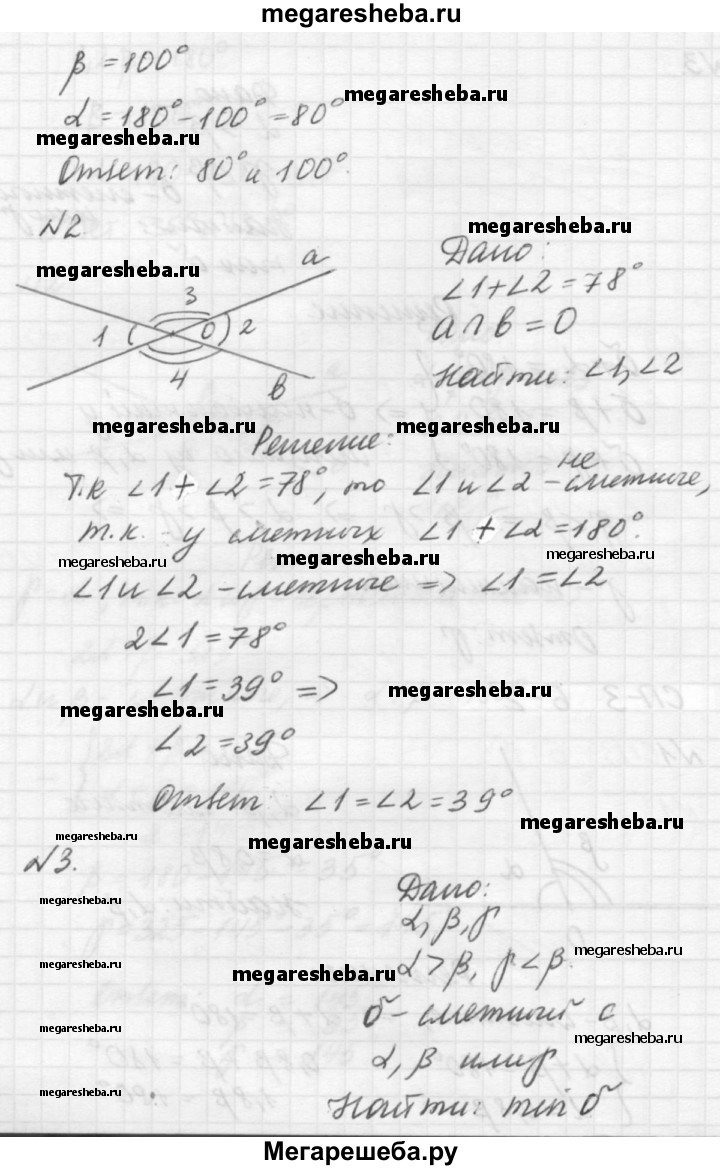 megaresheba.ru
β = 100°
α = 180° - 100° = 80° megaresheba.ru
megaresheba.ru
Ответ: 80° и 100°.
N2. megaresheba.ru
megaresheba.ru
a
3
1 O 2
4
b
Дано:
∠1+∠2 = 78°
a∩b = O
Найти: ∠1, ∠2
megaresheba.ru megaresheba.ru
Решение:
Т.к ∠1+∠2 = 78°, то ∠1 и ∠2 - не смежные,
т.к. у смежных ∠1+∠2 = 180°.
megaresheba.ru megaresheba.ru megaresheba.ru
∠1 и ∠2 - смежные => ∠1 = ∠2
2∠1 = 78°
∠1 = 39° => megaresheba.ru
megaresheba.ru
∠2 = 39°
Ответ: ∠1 = ∠2 = 39°
megaresheba.ru
megaresheba.ru megaresheba.ru
N3.
Дано:
megaresheba.ru
α, β, γ
α > β, γ < β.
megaresheba.ru
megaresheba.ru megaresheba.ru
δ - смежный с
megaresheba.ru megaresheba.ru
α, β или γ
megaresheba.ru
Найти: min δ
Мегарешеба.ру